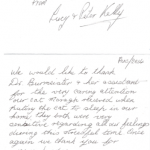 FROM
Lucy & Peter Kelly
We would like to thank
Dr. Burmaster & her assistant
for the very caring attention
our cat received when
putting the cat to sleep in our
home, they both were very
sensitive regarding all our feelings
during this stressful time. Once
again we thank you for